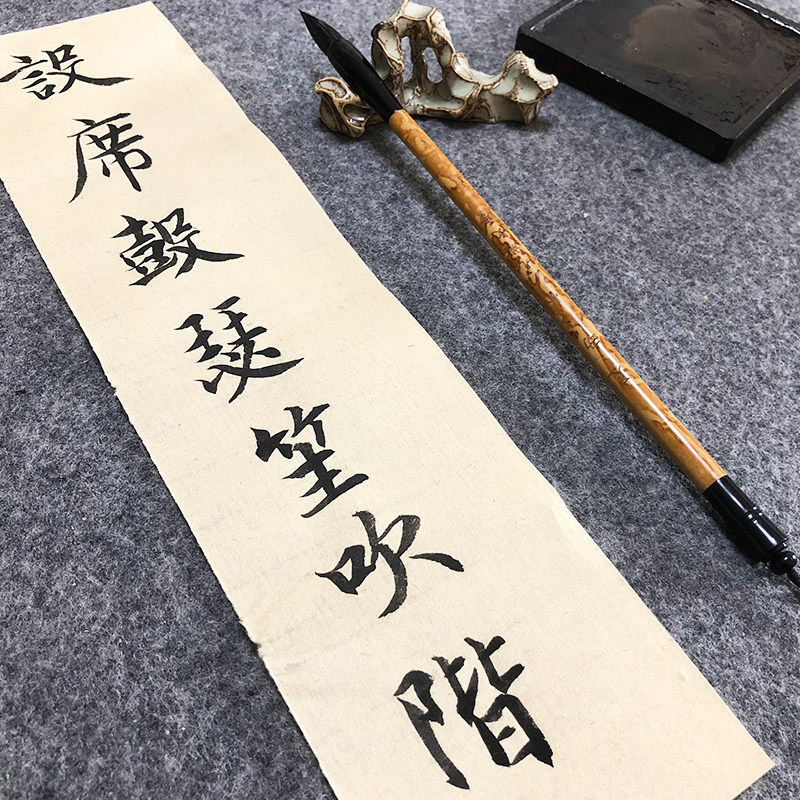 設席鼓瑟笙吹階